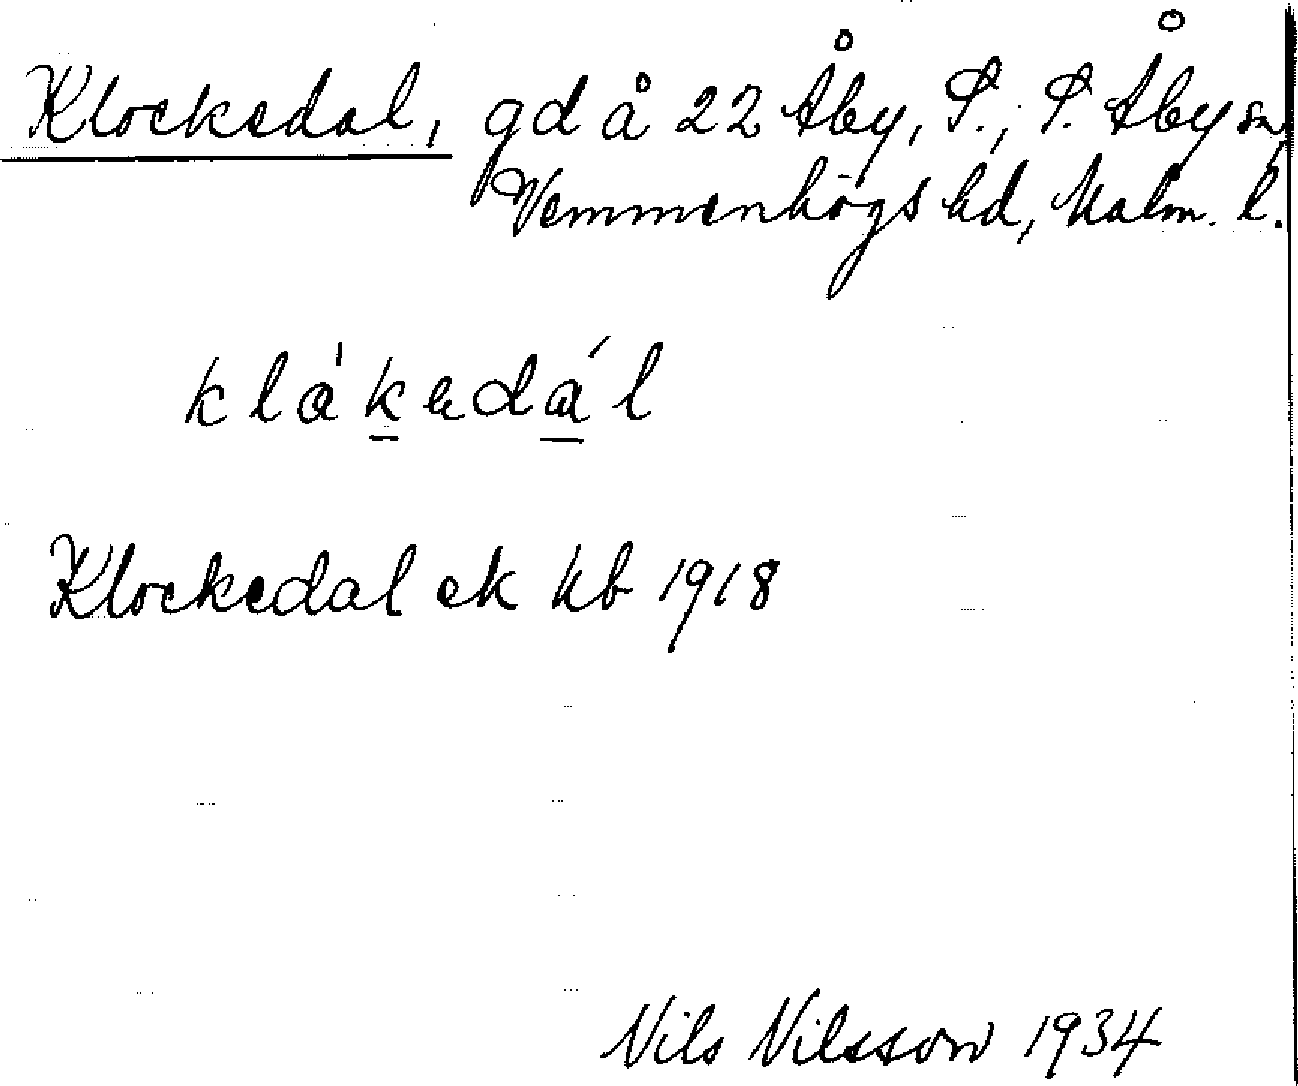 Klockedal, gd å 22 Åby, S.; S. Åby sn,
Vemmenhögs hd, Malm. l.
klåkedál
Klockedal ek kb 1918
Nils Nilsson 1934